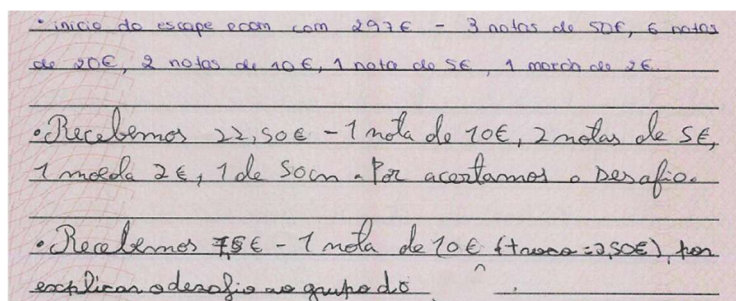 • inicio do escape room com 297€ - 3 notas de 50€, 6 notas
de 20€, 2 notas de 10€, 1 nota de 5€, 1 moeda de 2€
• Recebemos 22,50€ - 1 nota de 10€, 2 notas de 5€,
1 moeda 2€, 1 de 50cn. Por acertamos o Desafio.
• Recebemos 7,5€ - 1 nota de 10€ (troco = 2,50€), por
explicar o desafio ao grupo do